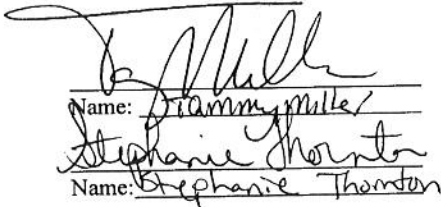 Name: Tammy Miller
Stephanie Thornton
Name: Stephanie Thornton